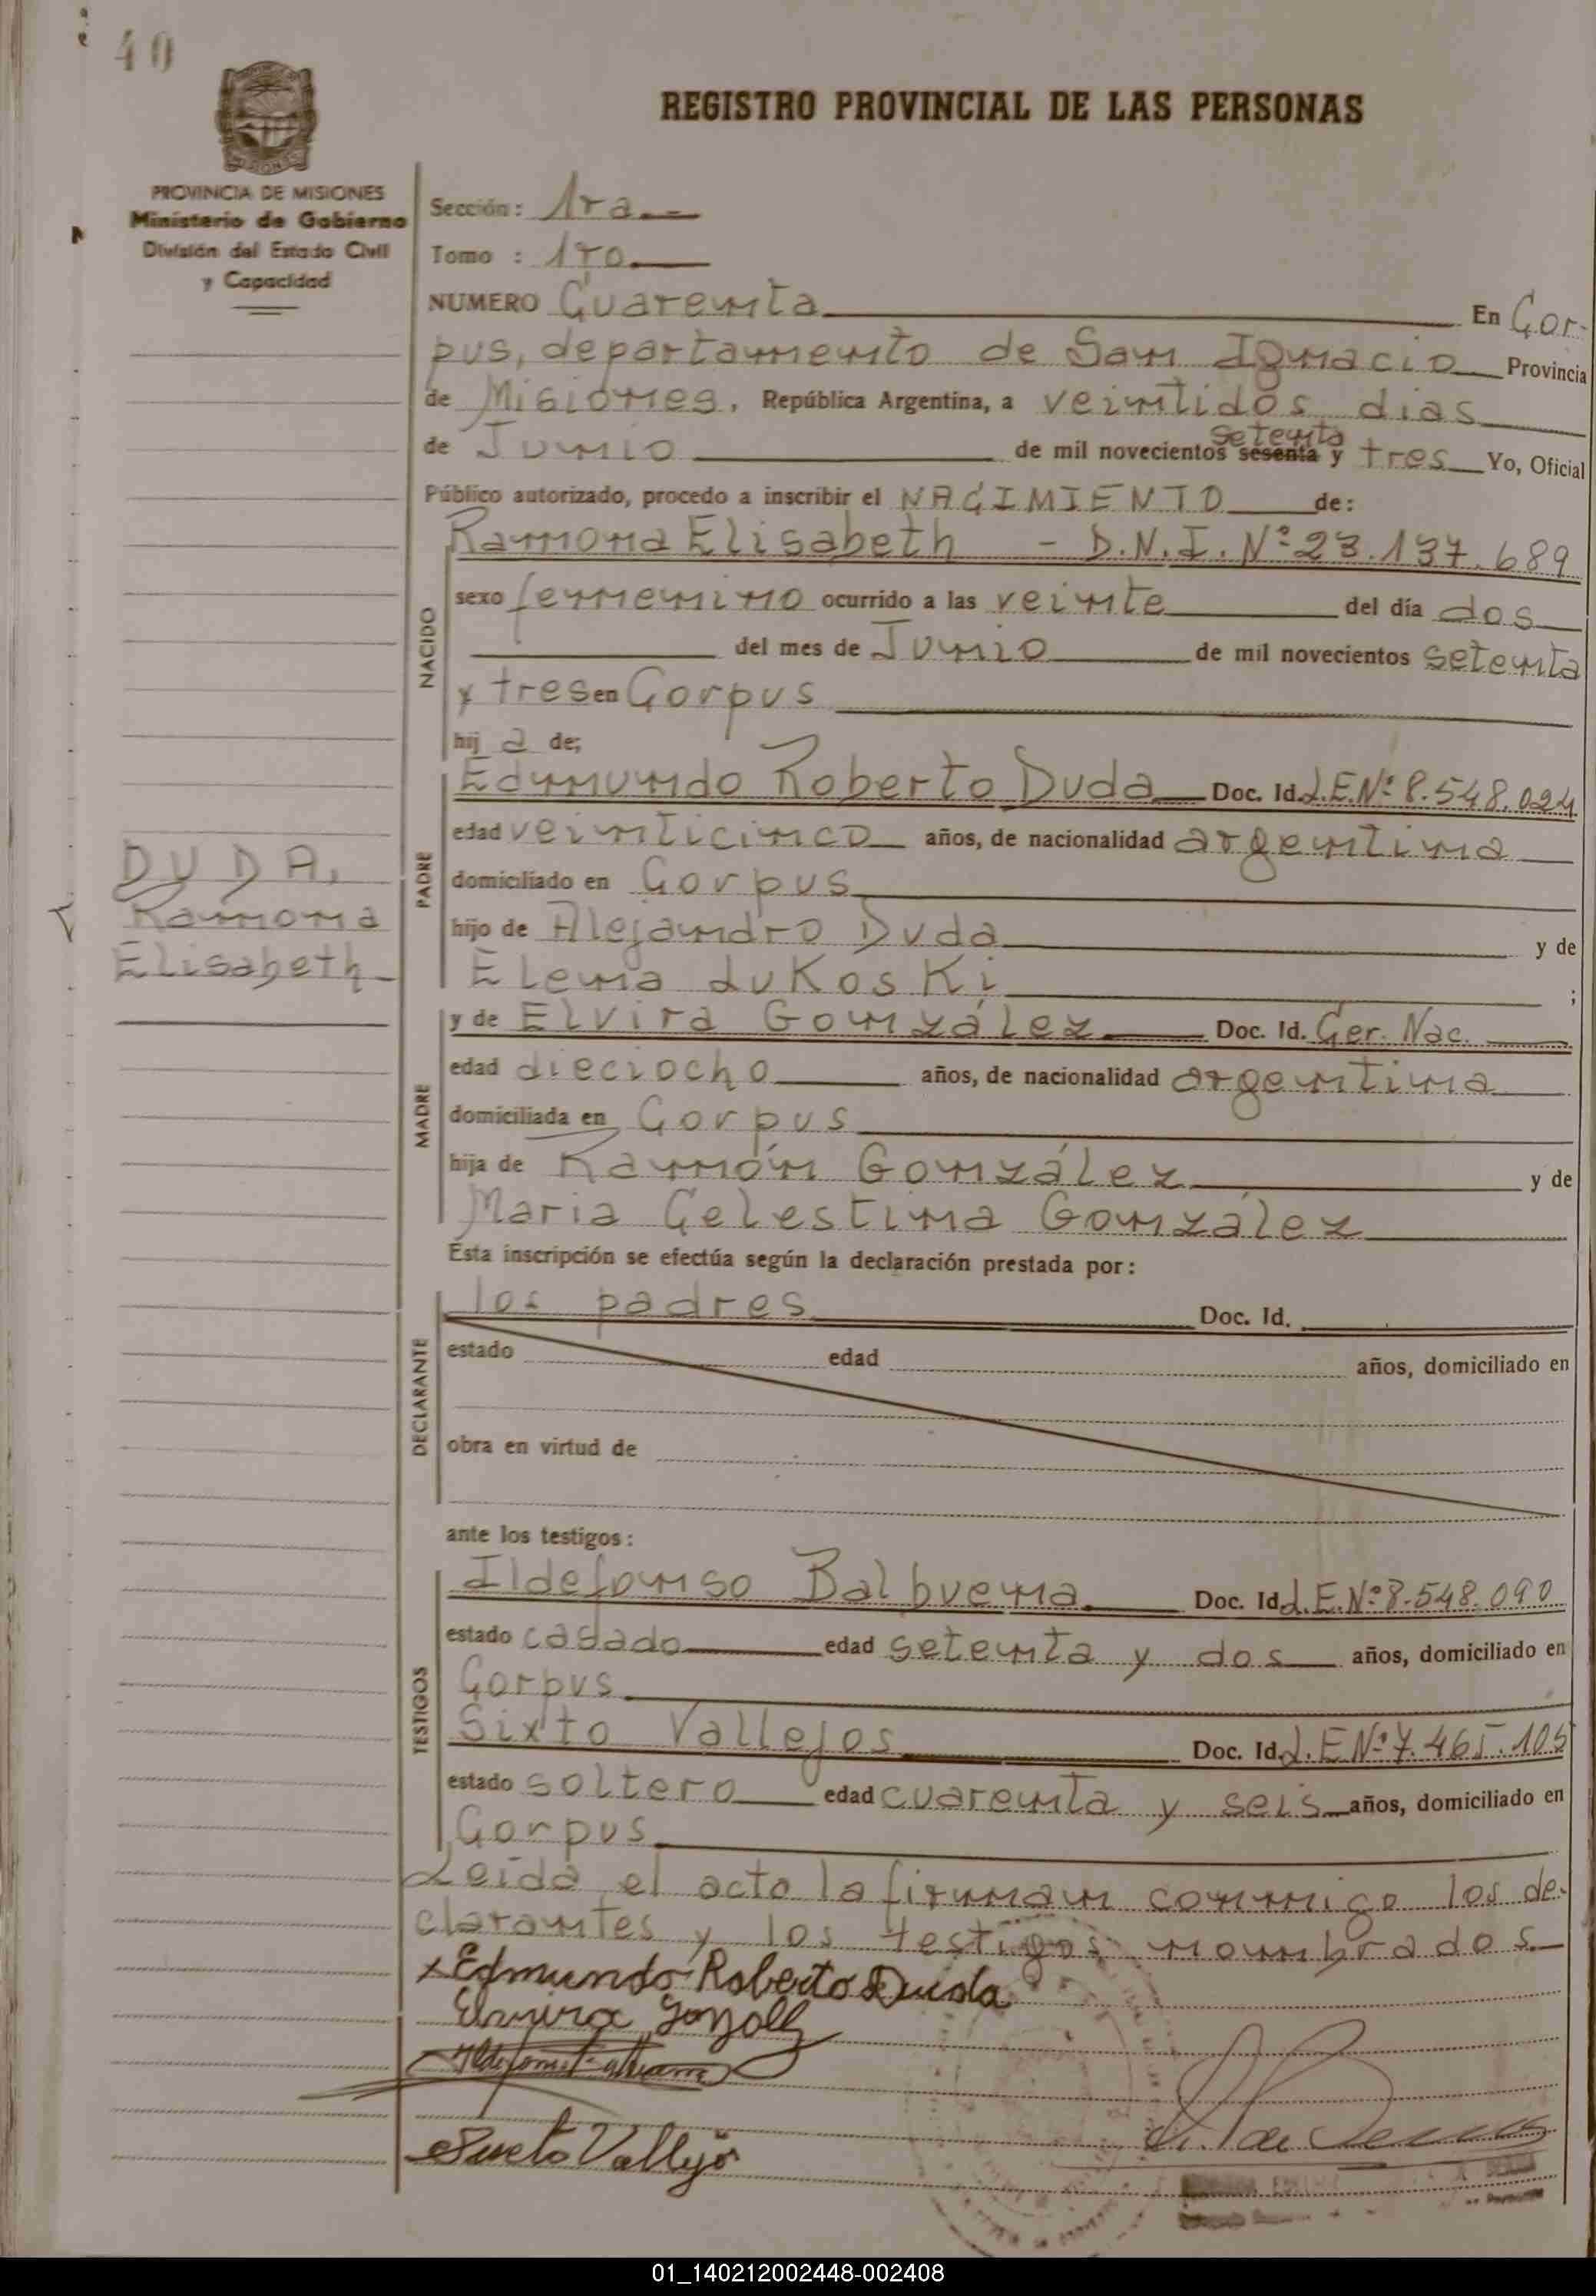 40
REGISTRO PROVINCIAL DE LAS PERSONAS
PROVINCIA DE MISIONES
Ministerio de Gobierno
División del Estado Civil
y Capacidad
Sección: 1ra
Tomo : 1ro
NUMERO Cuarenta En Cor-
pus, departamento de San Ignacio Provincia
de Misiones, República Argentina, a veintidos dias
de Junio de mil novecientos sesenta setenta y tres Yo, Oficial
Público autorizado, procedo a inscribir el NACIMIENTO de:
Ramona Elisabeth - D.N.I. Nº 23.137.689
NACIDO
sexo femenino ocurrido a las veinte del día dos
del mes de Junio de mil novecientos setenta
y tres en Corpus
hij a de;
PADRE
Edmundo Roberto Duda Doc. Id. L.E.Nº 8.548.024
edad veinticinco años, de nacionalidad argentina
domiciliado en Corpus
hijo de Alejandro Duda y de
Elena Lukoski ;
DUDA,
Ramona
Elisabeth
MADRE
y de Elvira González Doc. Id. Cer. Nac.
edad dieciocho años, de nacionalidad argentina
domiciliada en Corpus
hija de Ramón González y de
Maria Celestina González
Esta inscripción se efectúa según la declaración prestada por:
DECLARANTE
los padres Doc. Id.
estado edad años, domiciliado en
obra en virtud de
ante los testigos:
TESTIGOS
Ildefonso Balbuena Doc. Id. L.E.Nº 8.548.090
estado casado edad setenta y dos años, domiciliado en
Corpus
Sixto Vallejos Doc. Id. L.E Nº 7.465.105
estado soltero edad cuarenta y seis años, domiciliado en
Corpus
Leida el acto la firman conmigo los de-
clarantes y los testigos nombrados
x Edmundo Roberto Duda
Vallejo
01_140212002448-002408